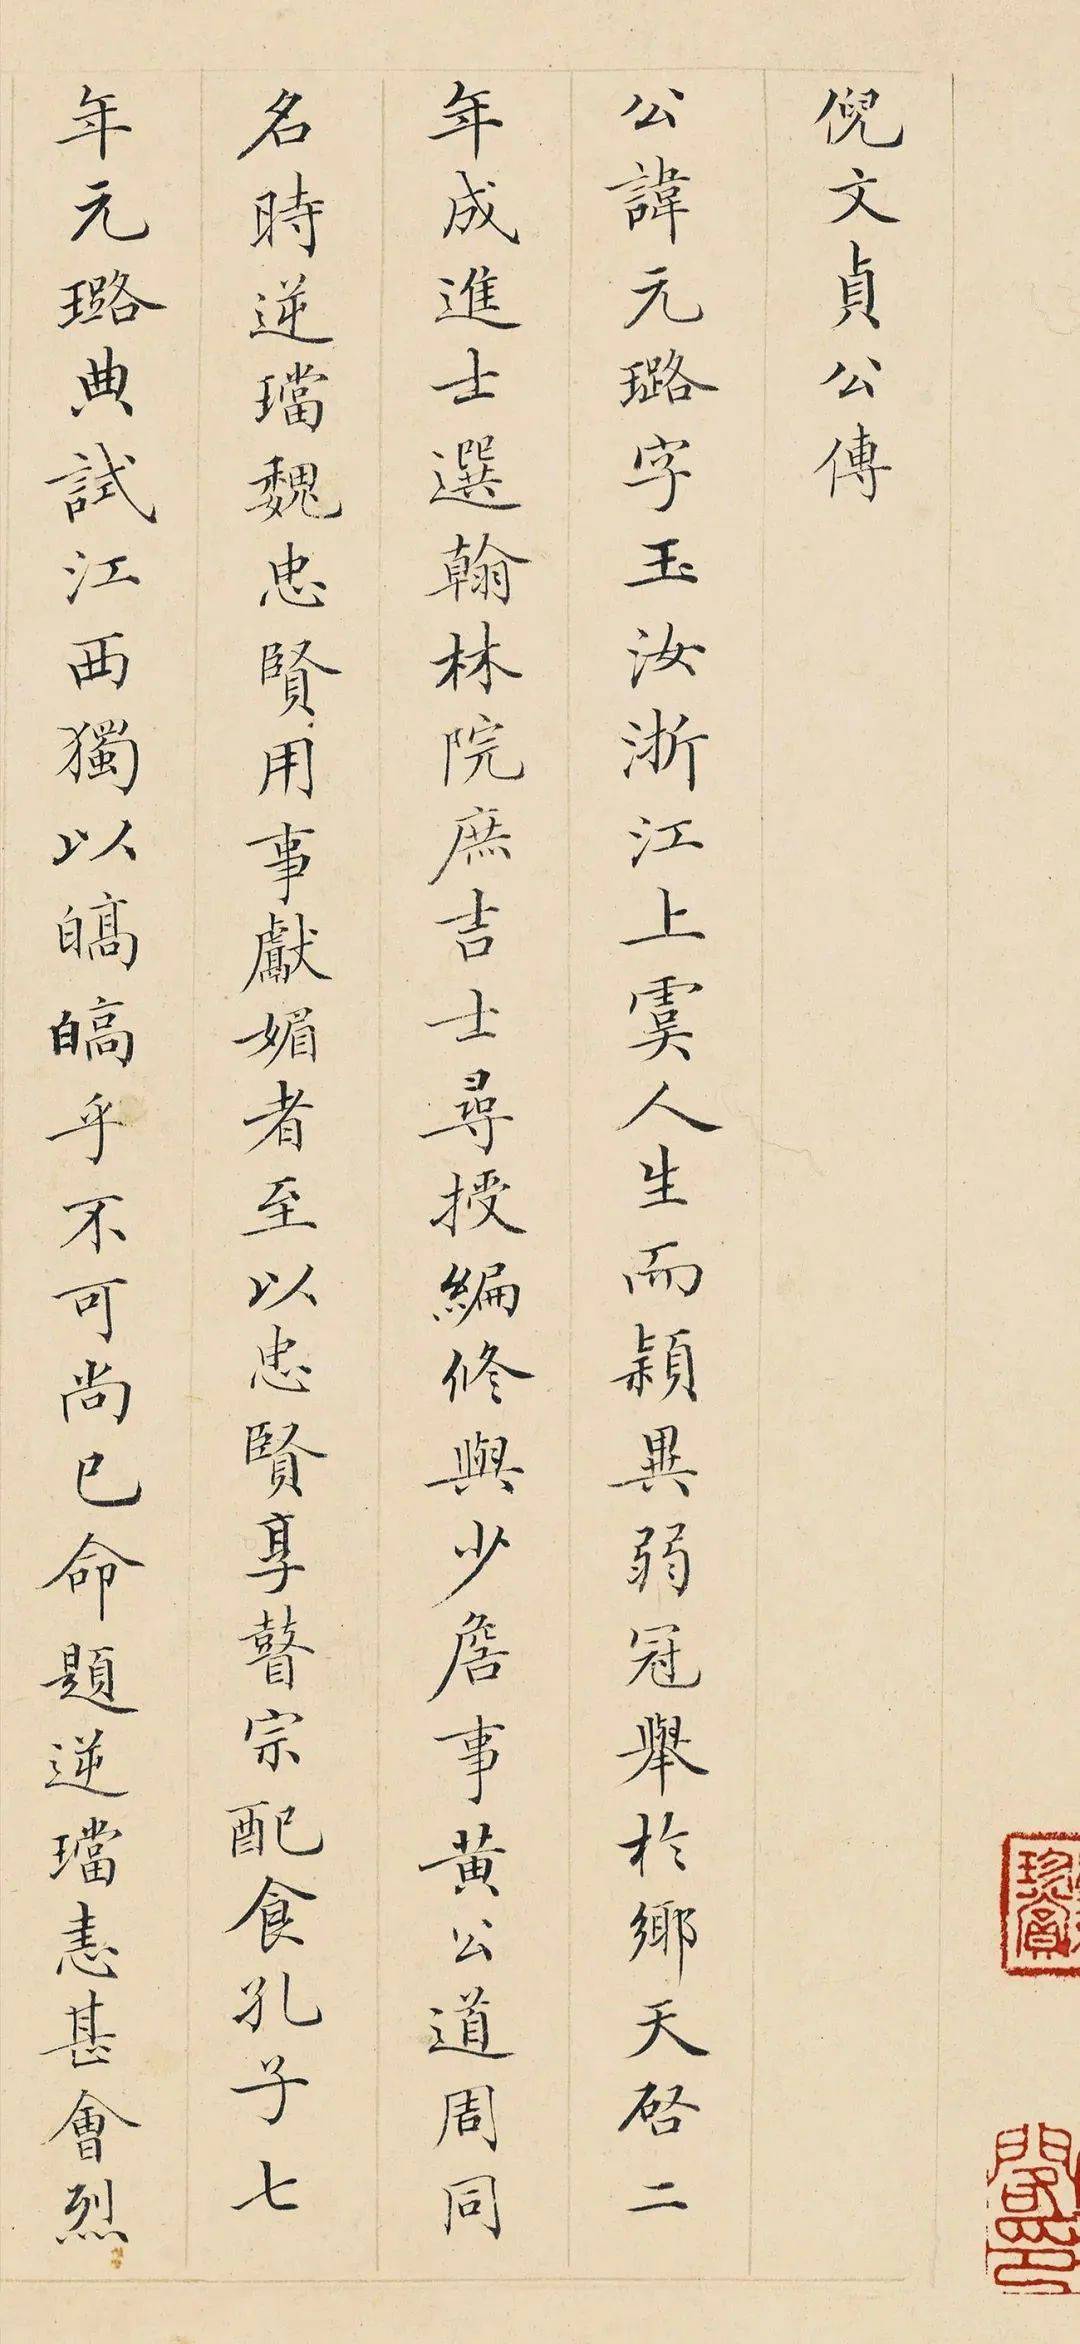 倪文貞公傳
公諱元璐字玉汝浙江上虞人生而穎異弱冠舉於鄉天啓二
年成進士選翰林院庶吉士尋授編修與少詹事黄公道周同
名時逆璫魏忠賢用事獻媚者至以忠賢享瞽宗配食孔子七
年元璐典試江西獨以皜皜乎不可尚已命題逆璫恚甚會烈
珍賞